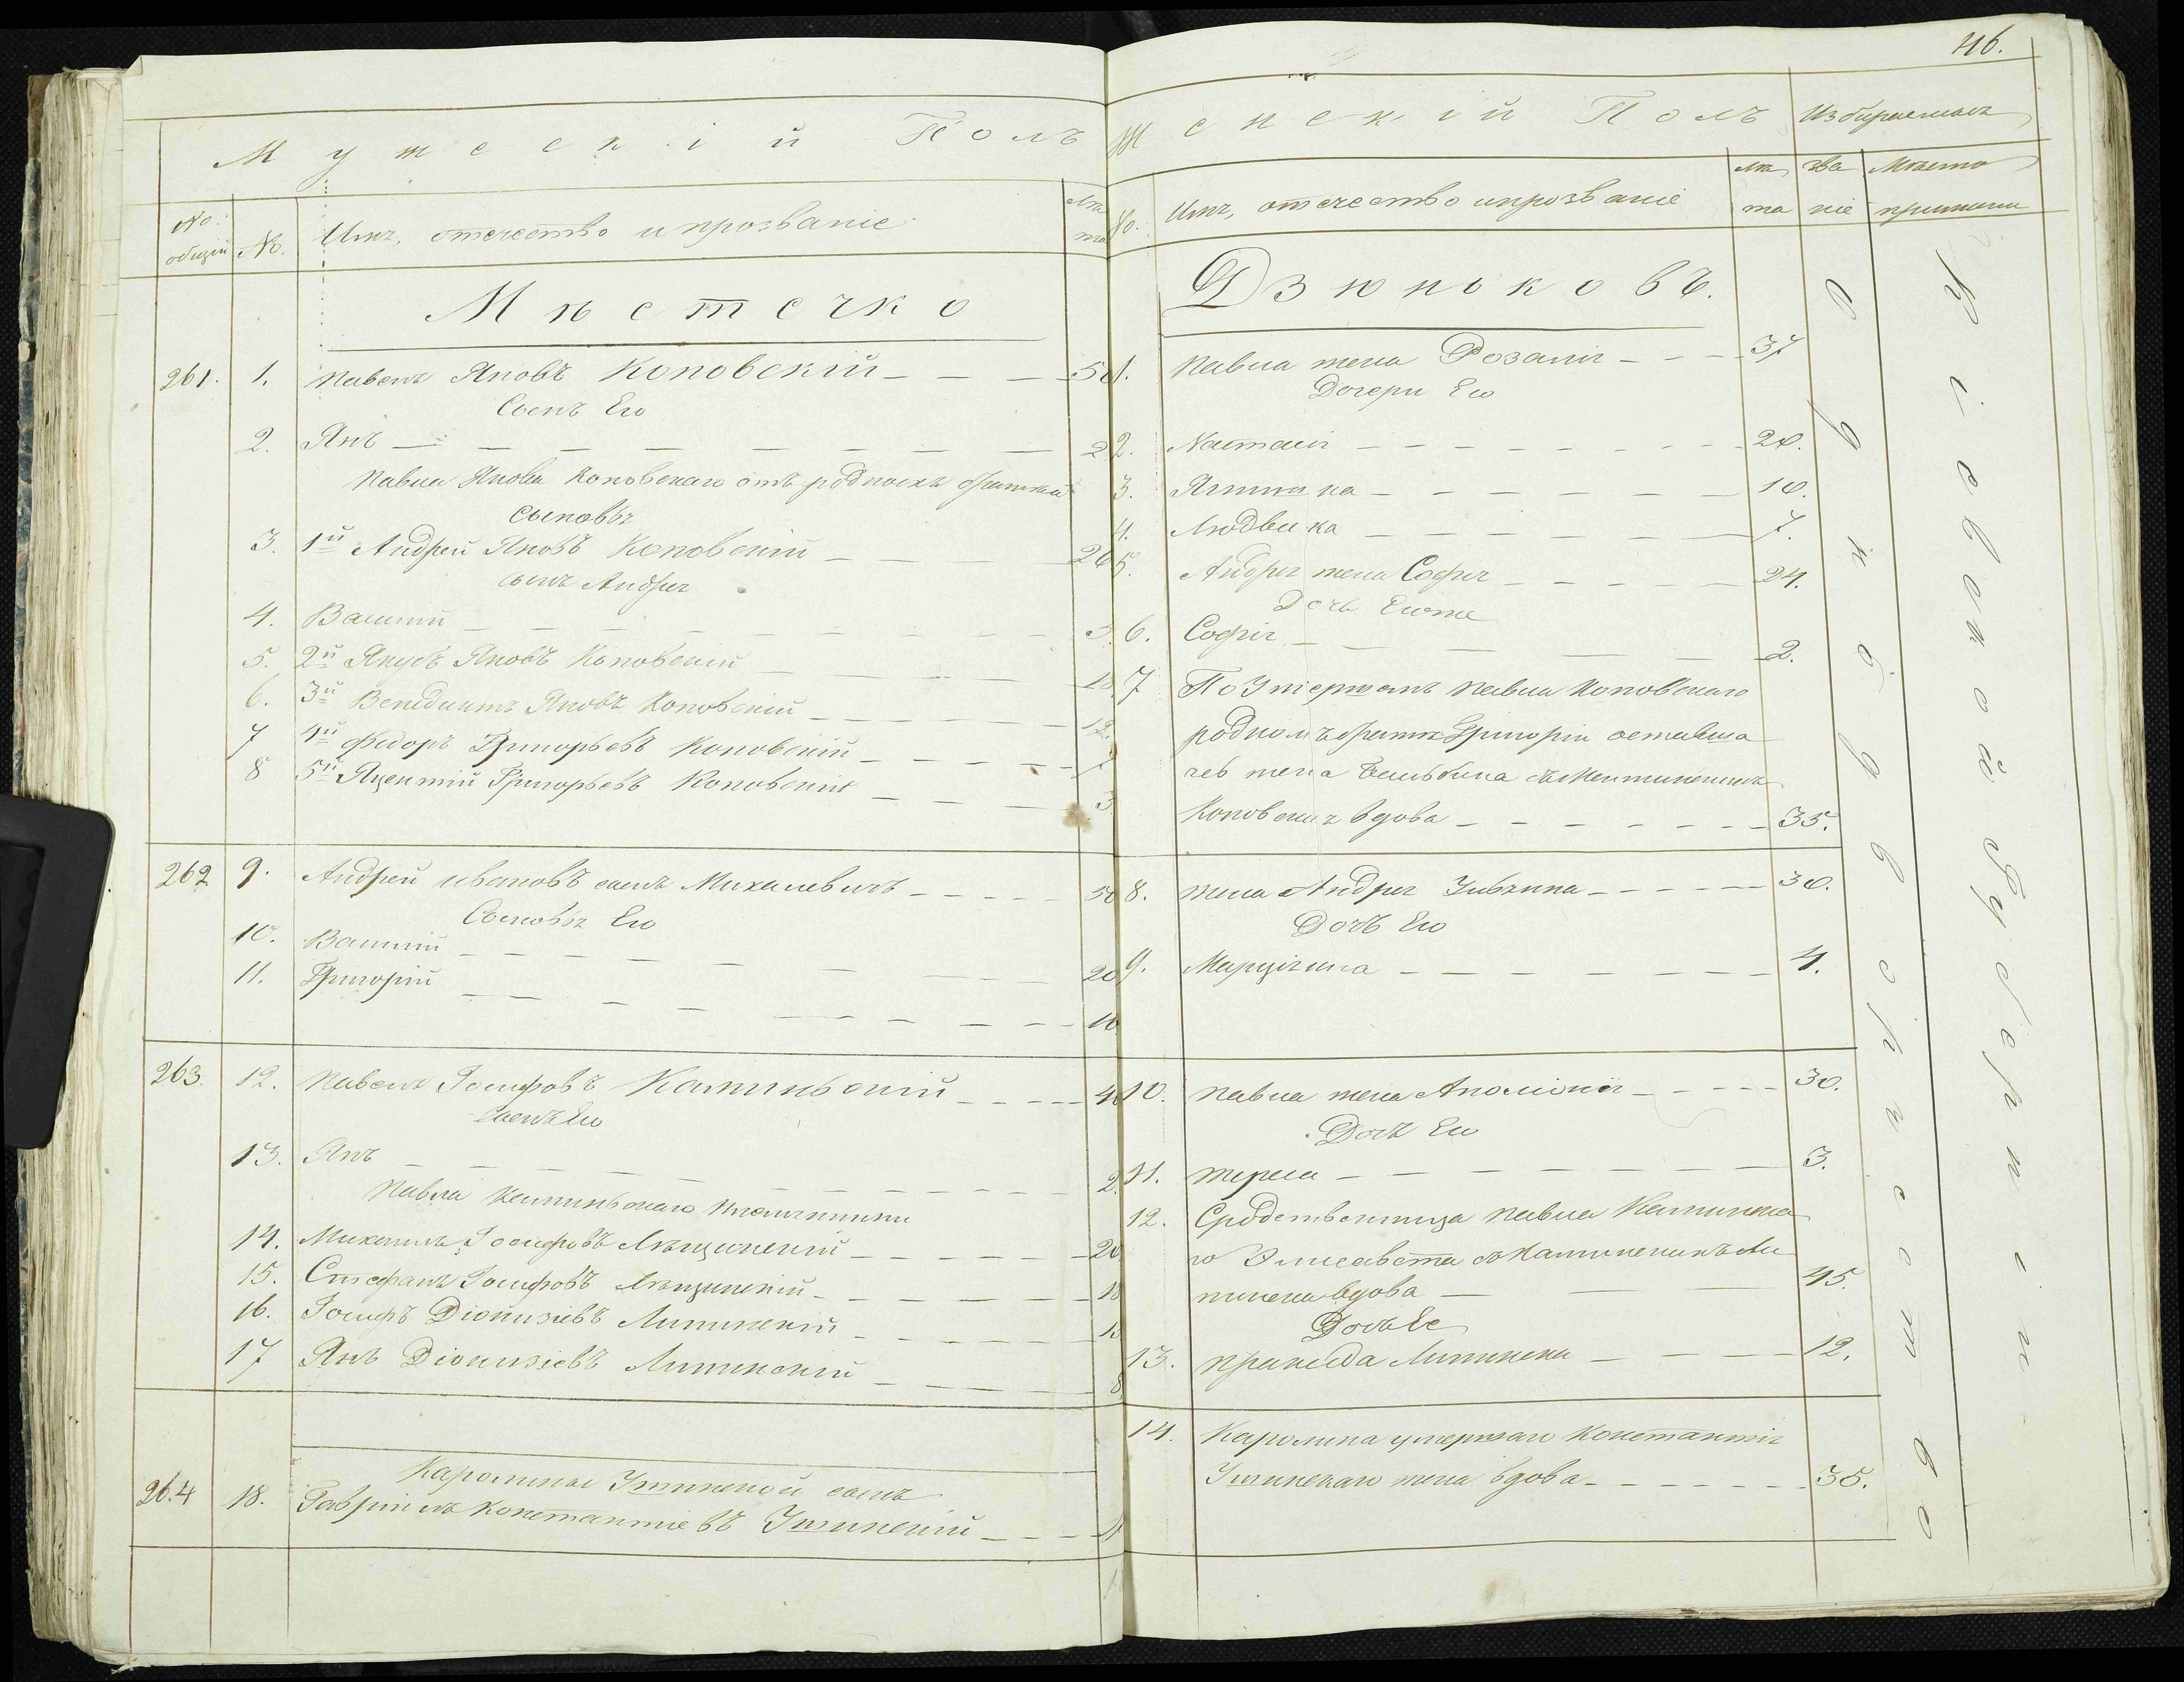 46.
Мужескій Полъ
No: общій
No.
Имя, отечество и прозваніе
Лѣта
Мѣстечко
261. 1. Павелъ Яновъ Коповскій — — — 50
Сынъ Его
2. Янъ — — — — — — — 2
Павла Янова Коповскаго отъ родныхъ братьевъ
сыновья
3. 1й Андрей Яновъ Коповскій — — — 26
сынъ Андрея
4. Василій — — — — — — — 3.
5. 2й Якубъ Яновъ Коповскій — — — 18
6. 3й Бенедиктъ Яновъ Коповскій — — — 12.
7 4й Федоръ Григорьевъ Коповскій — — —
8 5й Яцентій Григорьевъ Коповскій — — — 3
262 9. Андрей Ивановъ сынъ Михалевичъ — — — 50
Сыновья Его
10. Василій — — — — — — — 20
11. Григорій — — — — — — — 16
263. 12. Павелъ Іосифовъ Каминьскій — — — 40
Сынъ Его
13. Янъ — — — — — — — 2.
Павла Каминьскаго племянники
14. Михаилъ Іосифовъ Лѣщинскій — — — 20
15. Стефанъ Іосифовъ Лѣщинскій — — — 18
16. Іосифъ Діонизіевъ Липинскій — — — 13
17 Янъ Діонизіевъ Липинскій — — — 8.
Каролины сынъ
264 18. Гавріилъ Константіевъ — — — 4
Женскій Полъ
Избираемая
No.
Имя, отечество и прозваніе
Лѣта
зва ніе
Мѣсто
Дзюньковъ.
1. Павла жена Розалія — — — 37
Дочери Его
2. Настасія — — — — — 20.
3. — — — — — 10.
4. Людвика — — — — — 7.
5. Андрея жена Софія — — — — 24.
Дочь Егоже
6. Софія — — — — — 2.
7 По умершемъ Павла Коповскаго
родномъ братѣ Григорію оставша
яся жена
Коповская вдова — — — — — 35.
8. жена Андрея — — — — 30.
Дочь Его
9. Марціяна — — — — — 4.
10. Павла жена Аполонія — — — 30.
Дочь Его
11. Тереса — — — — — 3.
12. Сродственница Павла Каминска
го Элисавета съ Каминскихъ Ли
пинска вдова — — — 45.
Дочь Ее
13. Пракседа Липинска — — — 12.
14. Каролина умершаго Константія
жена вдова — — — 35.
Однодворчество
Кіевской Губерніи